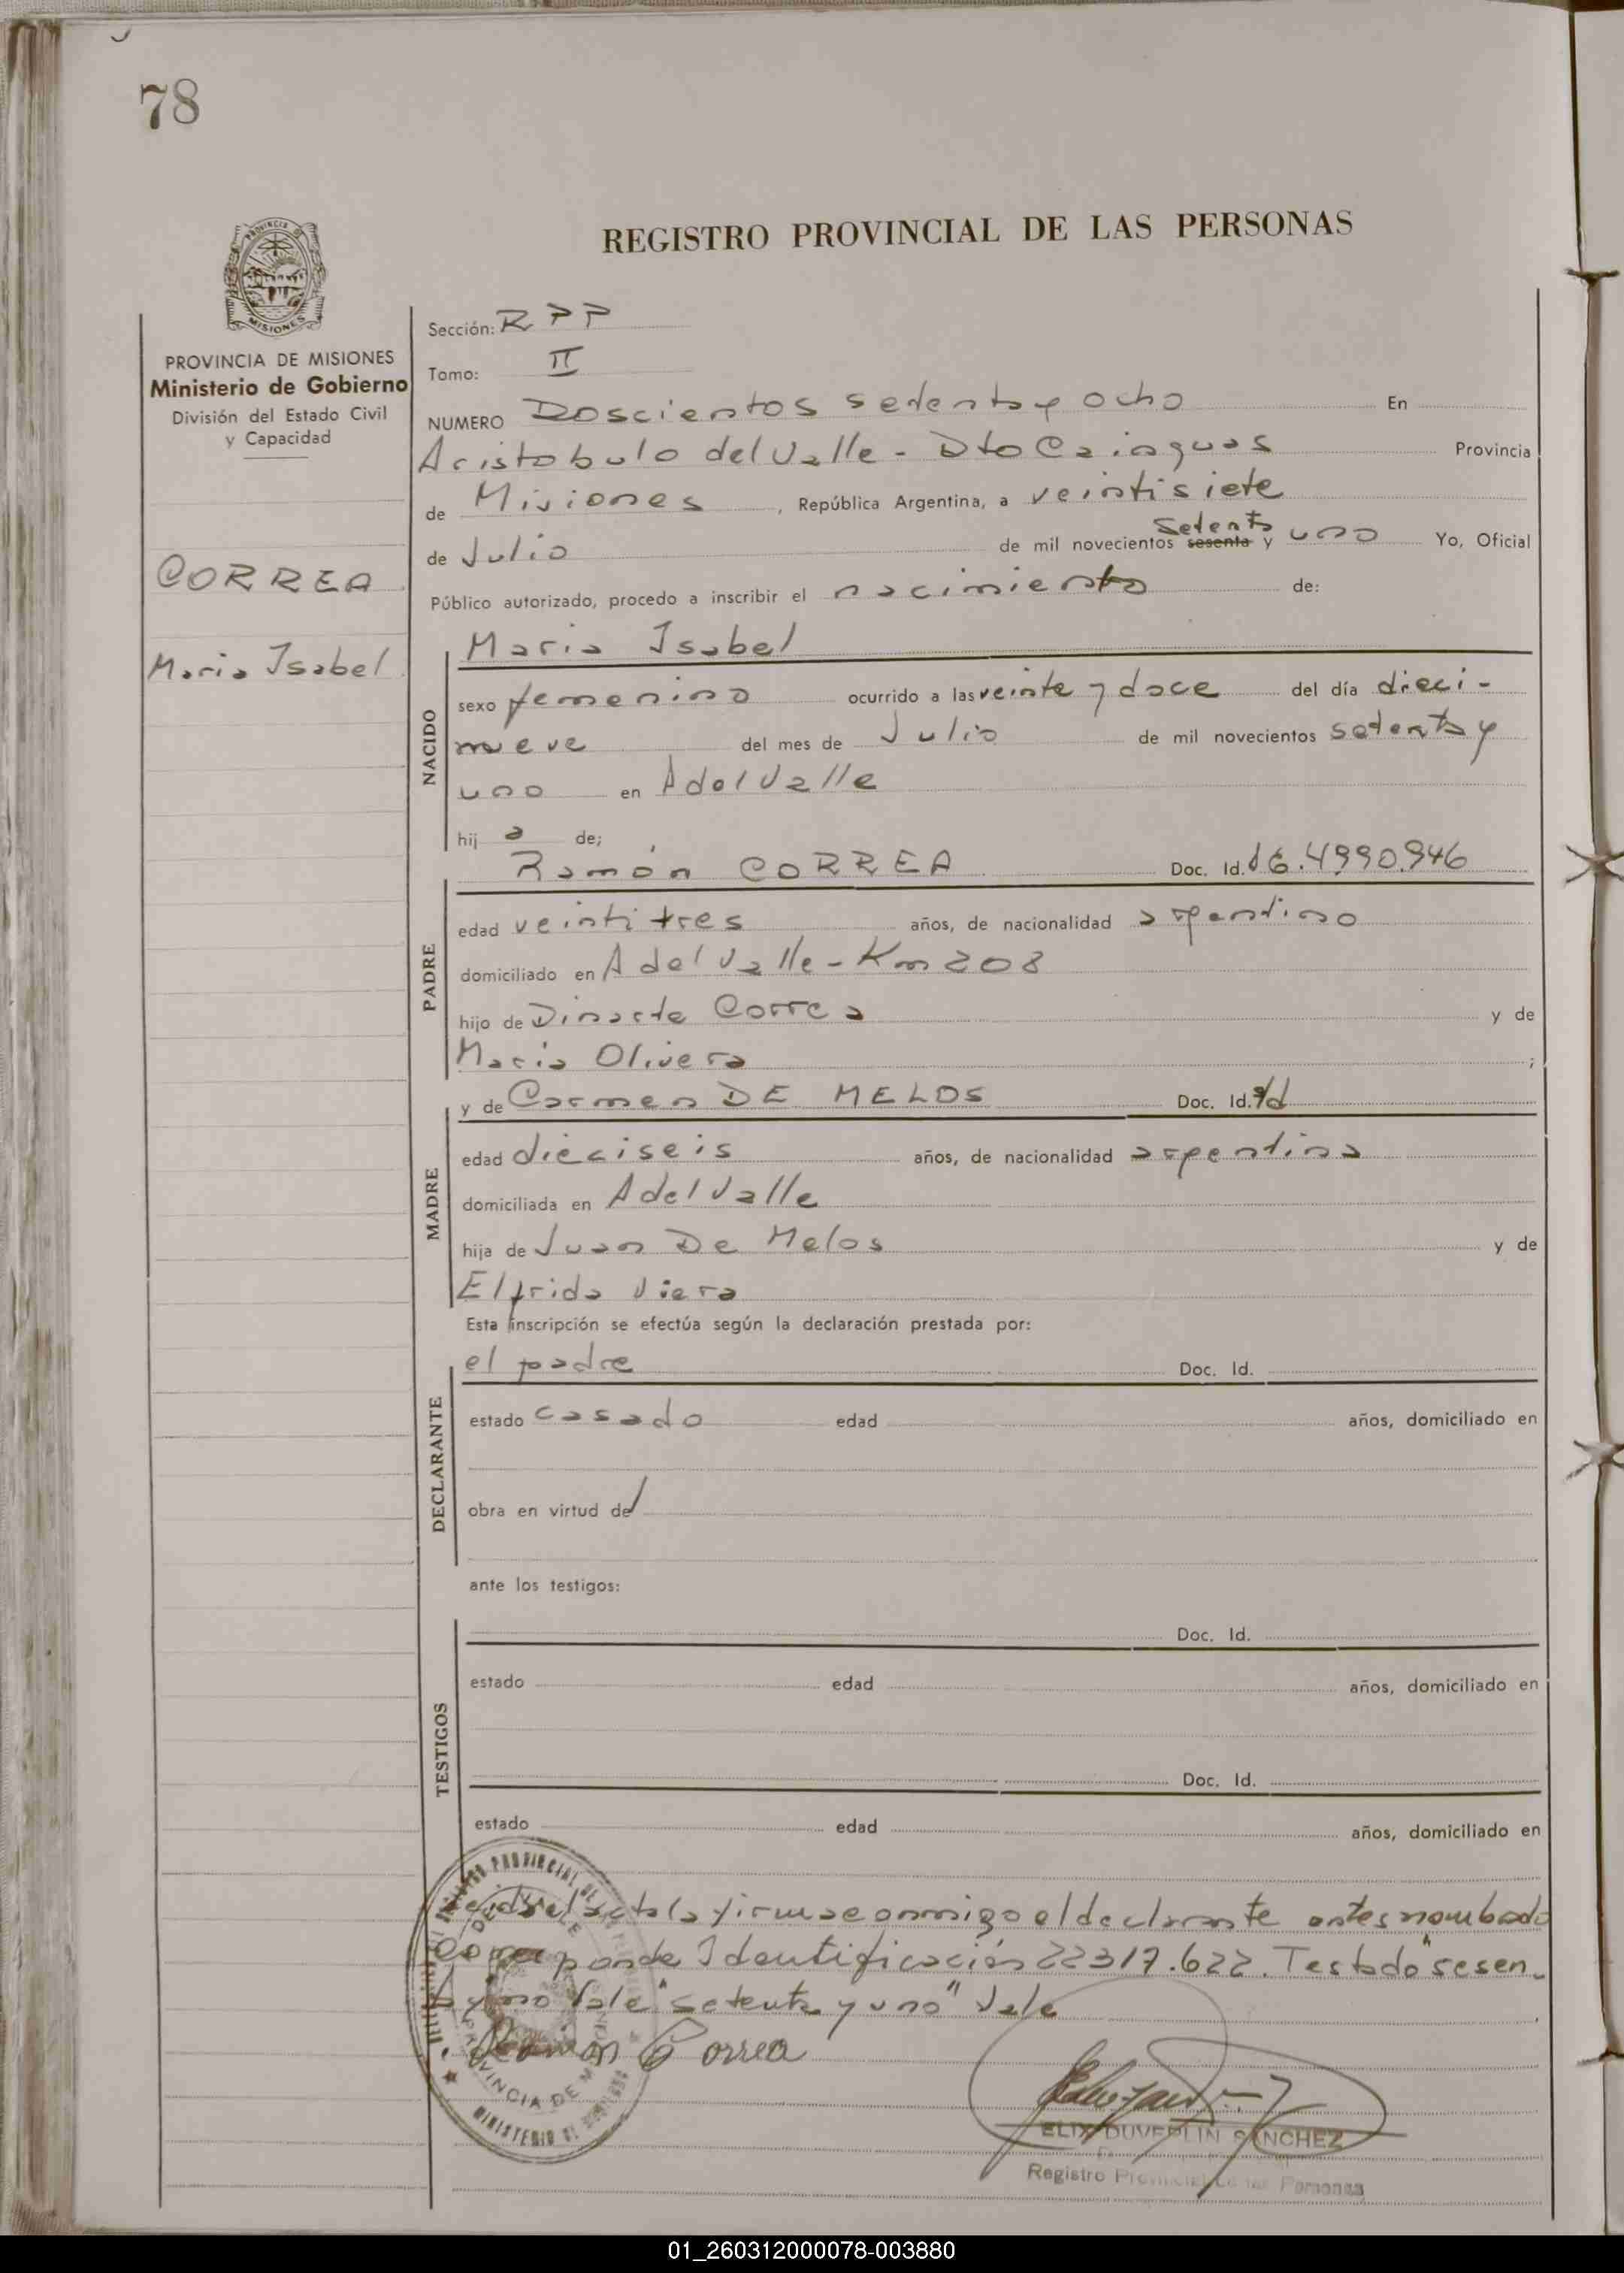 78
REGISTRO PROVINCIAL DE LAS PERSONAS
PROVINCIA DE MISIONES
Ministerio de Gobierno
División del Estado Civil
y Capacidad
CORREA
Maria Isabel
Sección: R P P
Tomo: II
NUMERO Doscientos setenta y ocho En
Aristobulo del Valle - Dto Cainguas Provincia
de Misiones, República Argentina, a veintisiete
setenta
de Julio de mil novecientos sesenta y uno Yo, Oficial
Público autorizado, procedo a inscribir el nacimiento de:
NACIDO
Maria Isabel
sexo femenino ocurrido a las veinte y doce del día dieci-
nueve del mes de Julio de mil novecientos setenta y
uno en A del Valle
hij a de;
PADRE
Ramón CORREA Doc. Id.
edad veintitres años, de nacionalidad argentino
domiciliado en A del Valle - Km 208
hijo de Dinarte Correa y de
Maria Olivera ;
MADRE
y de Carmen DE MELOS Doc. Id.
edad dieciseis años, de nacionalidad argentina
domiciliada en A del Valle
hija de Juan De Melos y de
Elfrida Viera
Esta inscripción se efectúa según la declaración prestada por:
DECLARANTE
el padre Doc. Id.
estado casado edad años, domiciliado en
obra en virtud de
ante los testigos:
TESTIGOS
Doc. Id.
estado edad años, domiciliado en
Doc. Id.
estado edad años, domiciliado en
Leida el acta la firma conmigo el declarante antes nombado
Corresponde Identificación 22317.622. Testado "sesen-
ta y no Vale "setenta y uno" Vale
Ramon Correa
ELIX DUVERLIN SANCHEZ
Registro Provincial de las Personas
PROVINCIA DE MISIONES
MINISTERIO DE GOBIERNO
01_260312000078-003880